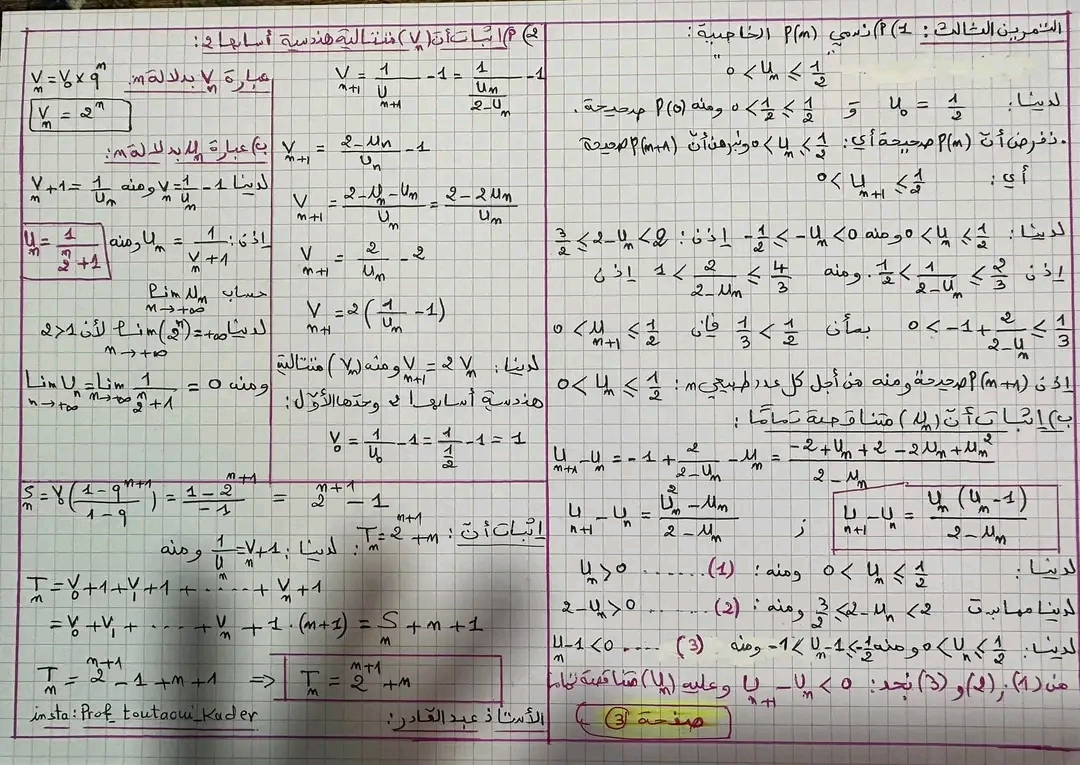 التمرين الثالث: 1) P) نسمي P(n) الخاصية:
"0 < Un ≤ 1/2"
لدينا: U0 = 1/2 و 0 < 1/2 ≤ 1/2 ومنه P(0) صحيحة.
• نفرض أنّ P(n) صحيحة أي: 0 < Un ≤ 1/2 ونبرهن أنّ P(n+1) صحيحة
أي: 0 < Un+1 ≤ 1/2
لدينا: 0 < Un ≤ 1/2 ومنه -1/2 ≤ -Un < 0 إذن: 3/2 ≤ 2-Un < 2
إذن 1/2 < 1/(2-Un) ≤ 2/3. ومنه 1 < 2/(2-Un) ≤ 4/3 إذن
0 < -1 + 2/(2-Un) ≤ 1/3 بمأن 1/3 < 1/2 فإن 0 < Un+1 ≤ 1/2
إذن P(n+1) صحيحة ومنه من أجل كل عدد طبيعي n: 0 < Un ≤ 1/2
ب) إثبات أنّ (Un) متناقصة تمامًا:
Un+1 - Un = -1 + 2/(2-Un) - Un = (-2+Un+2-2Un+Un²)/(2-Un)
Un+1 - Un = (Un² - Un)/(2-Un) ; Un+1 - Un = Un(Un-1)/(2-Un)
لدينا: 0 < Un ≤ 1/2 ومنه: Un > 0 ....... (1)
لدينا مما سبق 3/2 ≤ 2-Un < 2 ومنه: 2-Un > 0 ....... (2)
لدينا: 0 < Un ≤ 1/2 ومنه -1 < Un-1 ≤ -1/2 ومنه Un-1 < 0 .... (3)
من (1), (2) و (3) نجد: Un+1 - Un < 0 وعليه (Un) متناقصة تماما
صفحة 3
2) P) إثبات أن (Vn) متتالية هندسية أساسها 2:
Vn+1 = 1/Un+1 - 1 = 1/(Un/(2-Un)) - 1
Vn+1 = (2-Un)/Un - 1
Vn+1 = (2-Un-Un)/Un = (2-2Un)/Un
Vn+1 = 2/Un - 2
Vn+1 = 2(1/Un - 1)
لدينا: Vn+1 = 2Vn ومنه (Vn) متتالية
هندسية أساسها 2 وحدها الأوّل:
V0 = 1/U0 - 1 = 1/(1/2) - 1 = 1
عبارة Vn بدلالة n.
Vn = V0 × q^n
Vn = 2^n
ب) عبارة Un بدلالة n:
لدينا Vn = 1/Un - 1 ومنه Vn+1 = 1/Un
إذن: Un = 1/(Vn+1) ومنه Un = 1/(2^n+1)
حساب Lim Un n→+∞
لدينا Lim(2^n) = +∞ n→+∞ لأن 2>1
ومنه Lim Un n→+∞ = Lim n→+∞ 1/(2^n+1) = 0
Sn = V0((1-q^(n+1))/(1-q)) = (1-2^(n+1))/(-1) = 2^(n+1) - 1
إثبات أنّ: Tn = 2^(n+1) + n: لدينا: 1/Un = Vn+1 ومنه
Tn = V0+1+V1+1+......+Vn+1
= V0+V1+......+Vn+1·(n+1) = Sn+n+1
Tn = 2^(n+1) - 1 + n + 1 ⟹ Tn = 2^(n+1) + n
الأستاذ عبد القادر:
insta: Prof_toutaoui_Kader